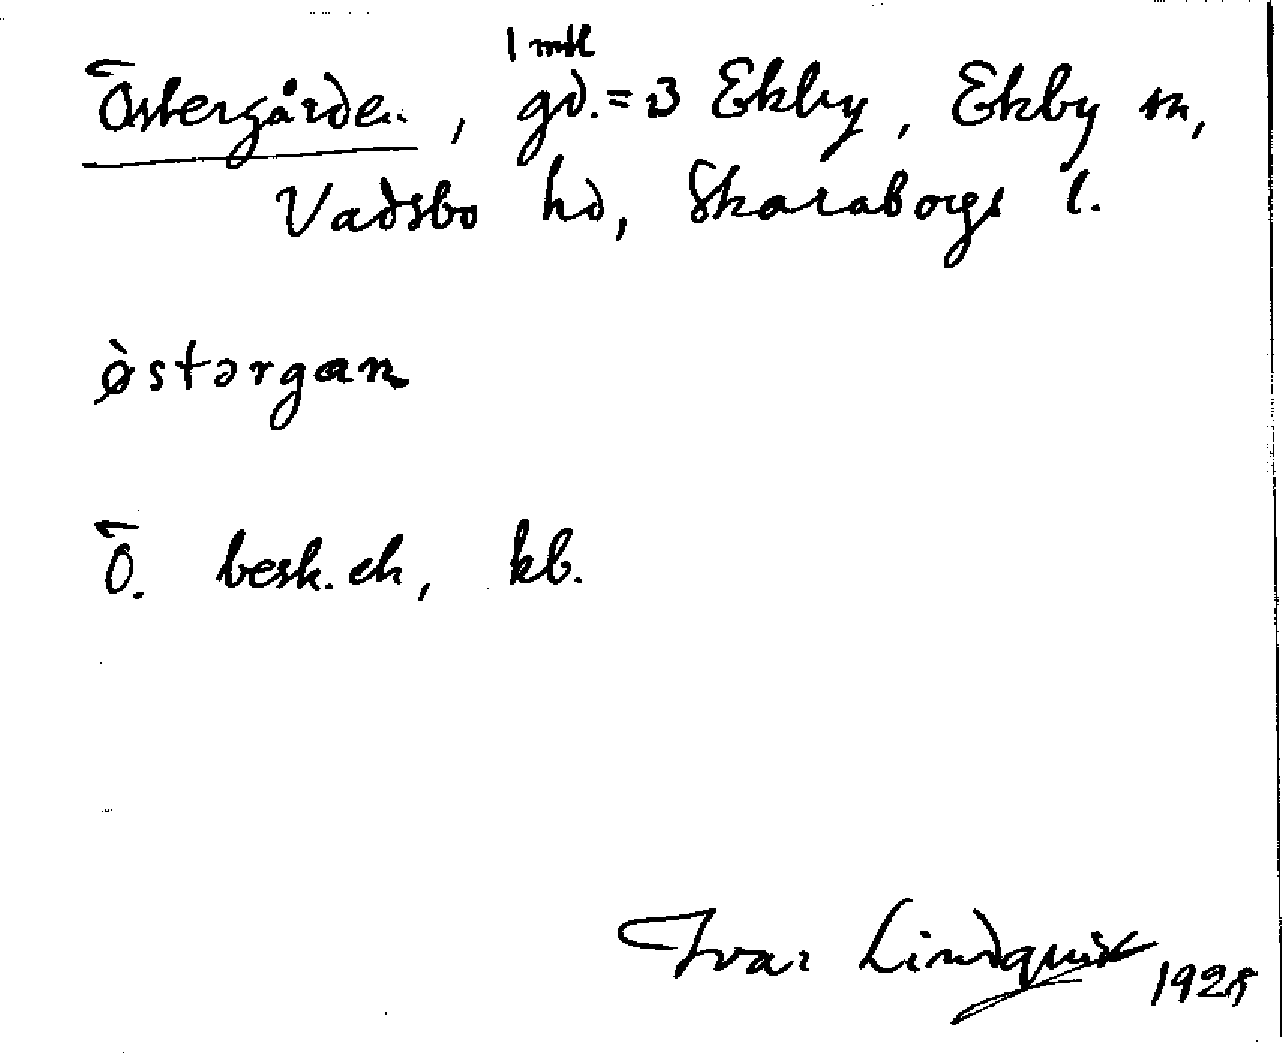 1 mtl
Östergården, gd. = 3 Ekby, Ekby sn,
Vadsbo hd, Skaraborgs l.
ø̀stərgan
Ö. besk. ek, kb.
Ivar Lindquist